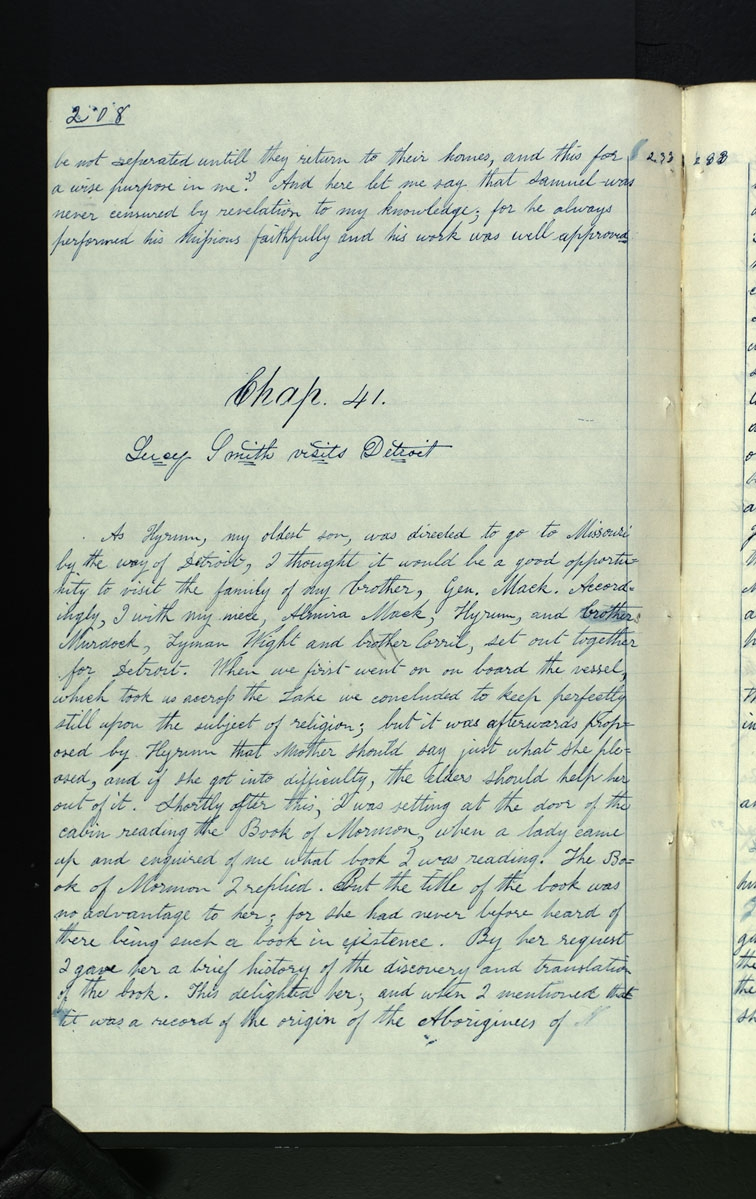 208
be not seperated untill they return to their homes, and this for
a wise purpose in me." And here let me say that Samuel was
never censured by revelation to my knowledge; for he always
performed his missions faithfully and his work was well approved
233 233
Chap. 41.
Lucy Smith visits Detroit
As Hyrum, my oldest son, was directed to go to Missouri
by the way of Detroit, I thought it would be a good opportu=
nity to visit the family of my brother, Gen. Mack. Accord=
ingly, I with my niece, Almira Mack, Hyrum, and brother
Murdock, Lyman Wight and brother Corril, set out together
for Detroit. When we first went on on board the vessel,
which took us accross the Lake we concluded to keep perfectly
still upon the subject of religion; but it was afterwards prop=
osed by Hyrum that Mother should say just what she ple=
ased, and if she got into difficulty, the elders should help her
out of it. Shortly after this, I was setting at the door of the
cabin reading the Book of Mormon, when a lady came
up and enquired of me what book I was reading. The Bo=
ok of Mormon I replied. But the title of the book was
no advantage to her; for she had never before heard of
there being such a book in existence. By her request
I gave her a brief history of the discovery and translation
of the book. This delighted her; and when I mentioned that
it was a record of the origin of the Aboriginees of